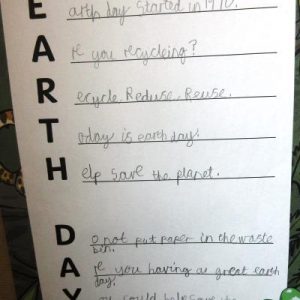 E arth day Started in 1970.
A re you recycleing?
R ecycle. Reduse. Reuse.
T oday is earth day!
H elp save the planet.
D o not put paper in the waste
bin.
A re you having a great earth
day!
Y ou could help save